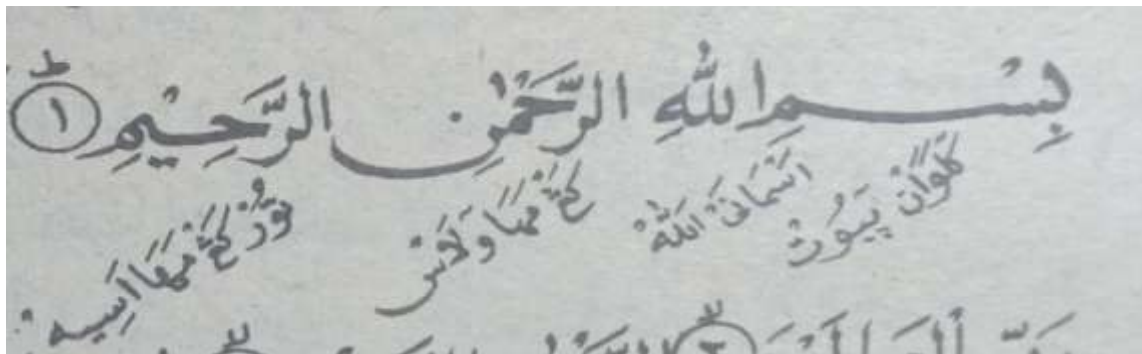 بِسْمِ اللهِ الرَّحْمٰنِ الرَّحِيْمِ ط ١
كَلَوَانْ پَبُوتْ اَسْمَانَىْ اَللهْ كَڠْ مَهَا وَلَاسْ تُوْرْ كَڠْ مَهَا اَسِيهْ